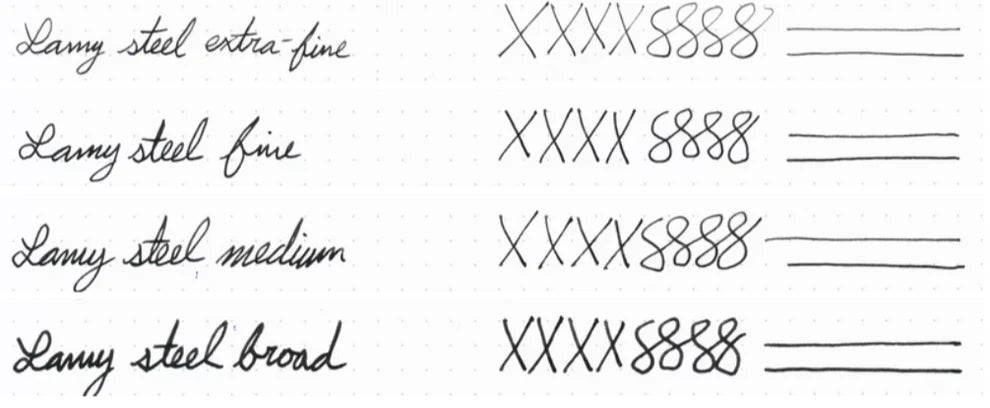 Lamy steel extra-fine XXXX 8888
Lamy steel fine XXXX 8888
Lamy steel medium XXXX 8888
Lamy steel broad XXXX 8888